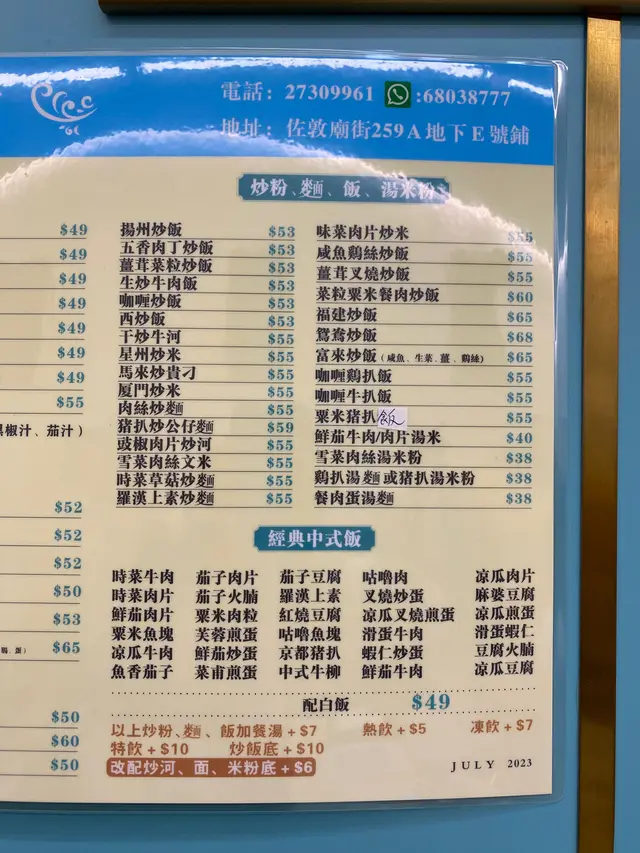 電話：27309961 :68038777
地址：佐敦廟街259A地下E號鋪
炒粉、麵、飯、湯米粉
$49
$49
$49
$49
$49
$49
$49
$55
椒汁、茄汁）
$52
$52
$52
$50
$53
、蛋） $65
$50
$60
$50
揚州炒飯 $53
五香肉丁炒飯 $53
薑茸菜粒炒飯 $53
生炒牛肉飯 $53
咖喱炒飯 $53
西炒飯 $53
干炒牛河 $55
星州炒米 $55
馬來炒貴刁 $55
厦門炒米 $55
肉絲炒麵 $55
猪扒炒公仔麵 $59
豉椒肉片炒河 $55
雪菜肉絲文米 $55
時菜草菇炒麵 $55
羅漢上素炒麵 $55
味菜肉片炒米 $55
咸魚鷄絲炒飯 $55
薑茸叉燒炒飯 $55
菜粒粟米餐肉炒飯 $60
福建炒飯 $65
鴛鴦炒飯 $68
富來炒飯（咸魚、生菜、薑、鷄絲） $65
咖喱鷄扒飯 $55
咖喱牛扒飯 $55
粟米猪扒飯 $55
鮮茄牛肉/肉片湯米 $40
雪菜肉絲湯米粉 $38
鷄扒湯麵或猪扒湯米粉 $38
餐肉蛋湯麵 $38
經典中式飯
時菜牛肉 茄子肉片 茄子豆腐 咕嚕肉 凉瓜肉片
時菜肉片 茄子火腩 羅漢上素 叉燒炒蛋 麻婆豆腐
鮮茄肉片 粟米肉粒 紅燒豆腐 凉瓜叉燒煎蛋 凉瓜煎蛋
粟米魚塊 芙蓉煎蛋 咕嚕魚塊 滑蛋牛肉 滑蛋蝦仁
凉瓜牛肉 鮮茄炒蛋 京都猪扒 蝦仁炒蛋 豆腐火腩
魚香茄子 菜甫煎蛋 中式牛柳 鮮茄牛肉 凉瓜豆腐
配白飯 $49
以上炒粉、麵、飯加餐湯+$7 熱飲+$5 凍飲+$7
特飲+$10 炒飯底+$10
改配炒河、面、米粉底+$6
JULY 2023